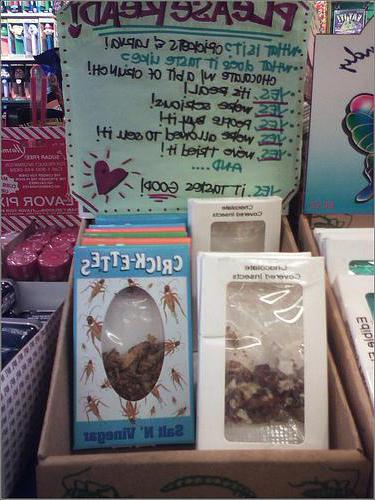 PLEASE READ!
What is it? CRICKETS & LARVA!
What does it taste like?
CHOCOLATE w/ A BIT OF CRUNCH!
YES, It's REAL!
YES, we're serious!
YES, people buy it!
YES, we're allowed to sell it!
YES, we've tried it!
AND....
YES, IT TASTES GOOD!
SUGAR FREE
AVOR FIX
CRICK-ETTES
Salt N' Vinegar
Chocolate
Covered Insects
Chocolate
Covered Insects
Edible